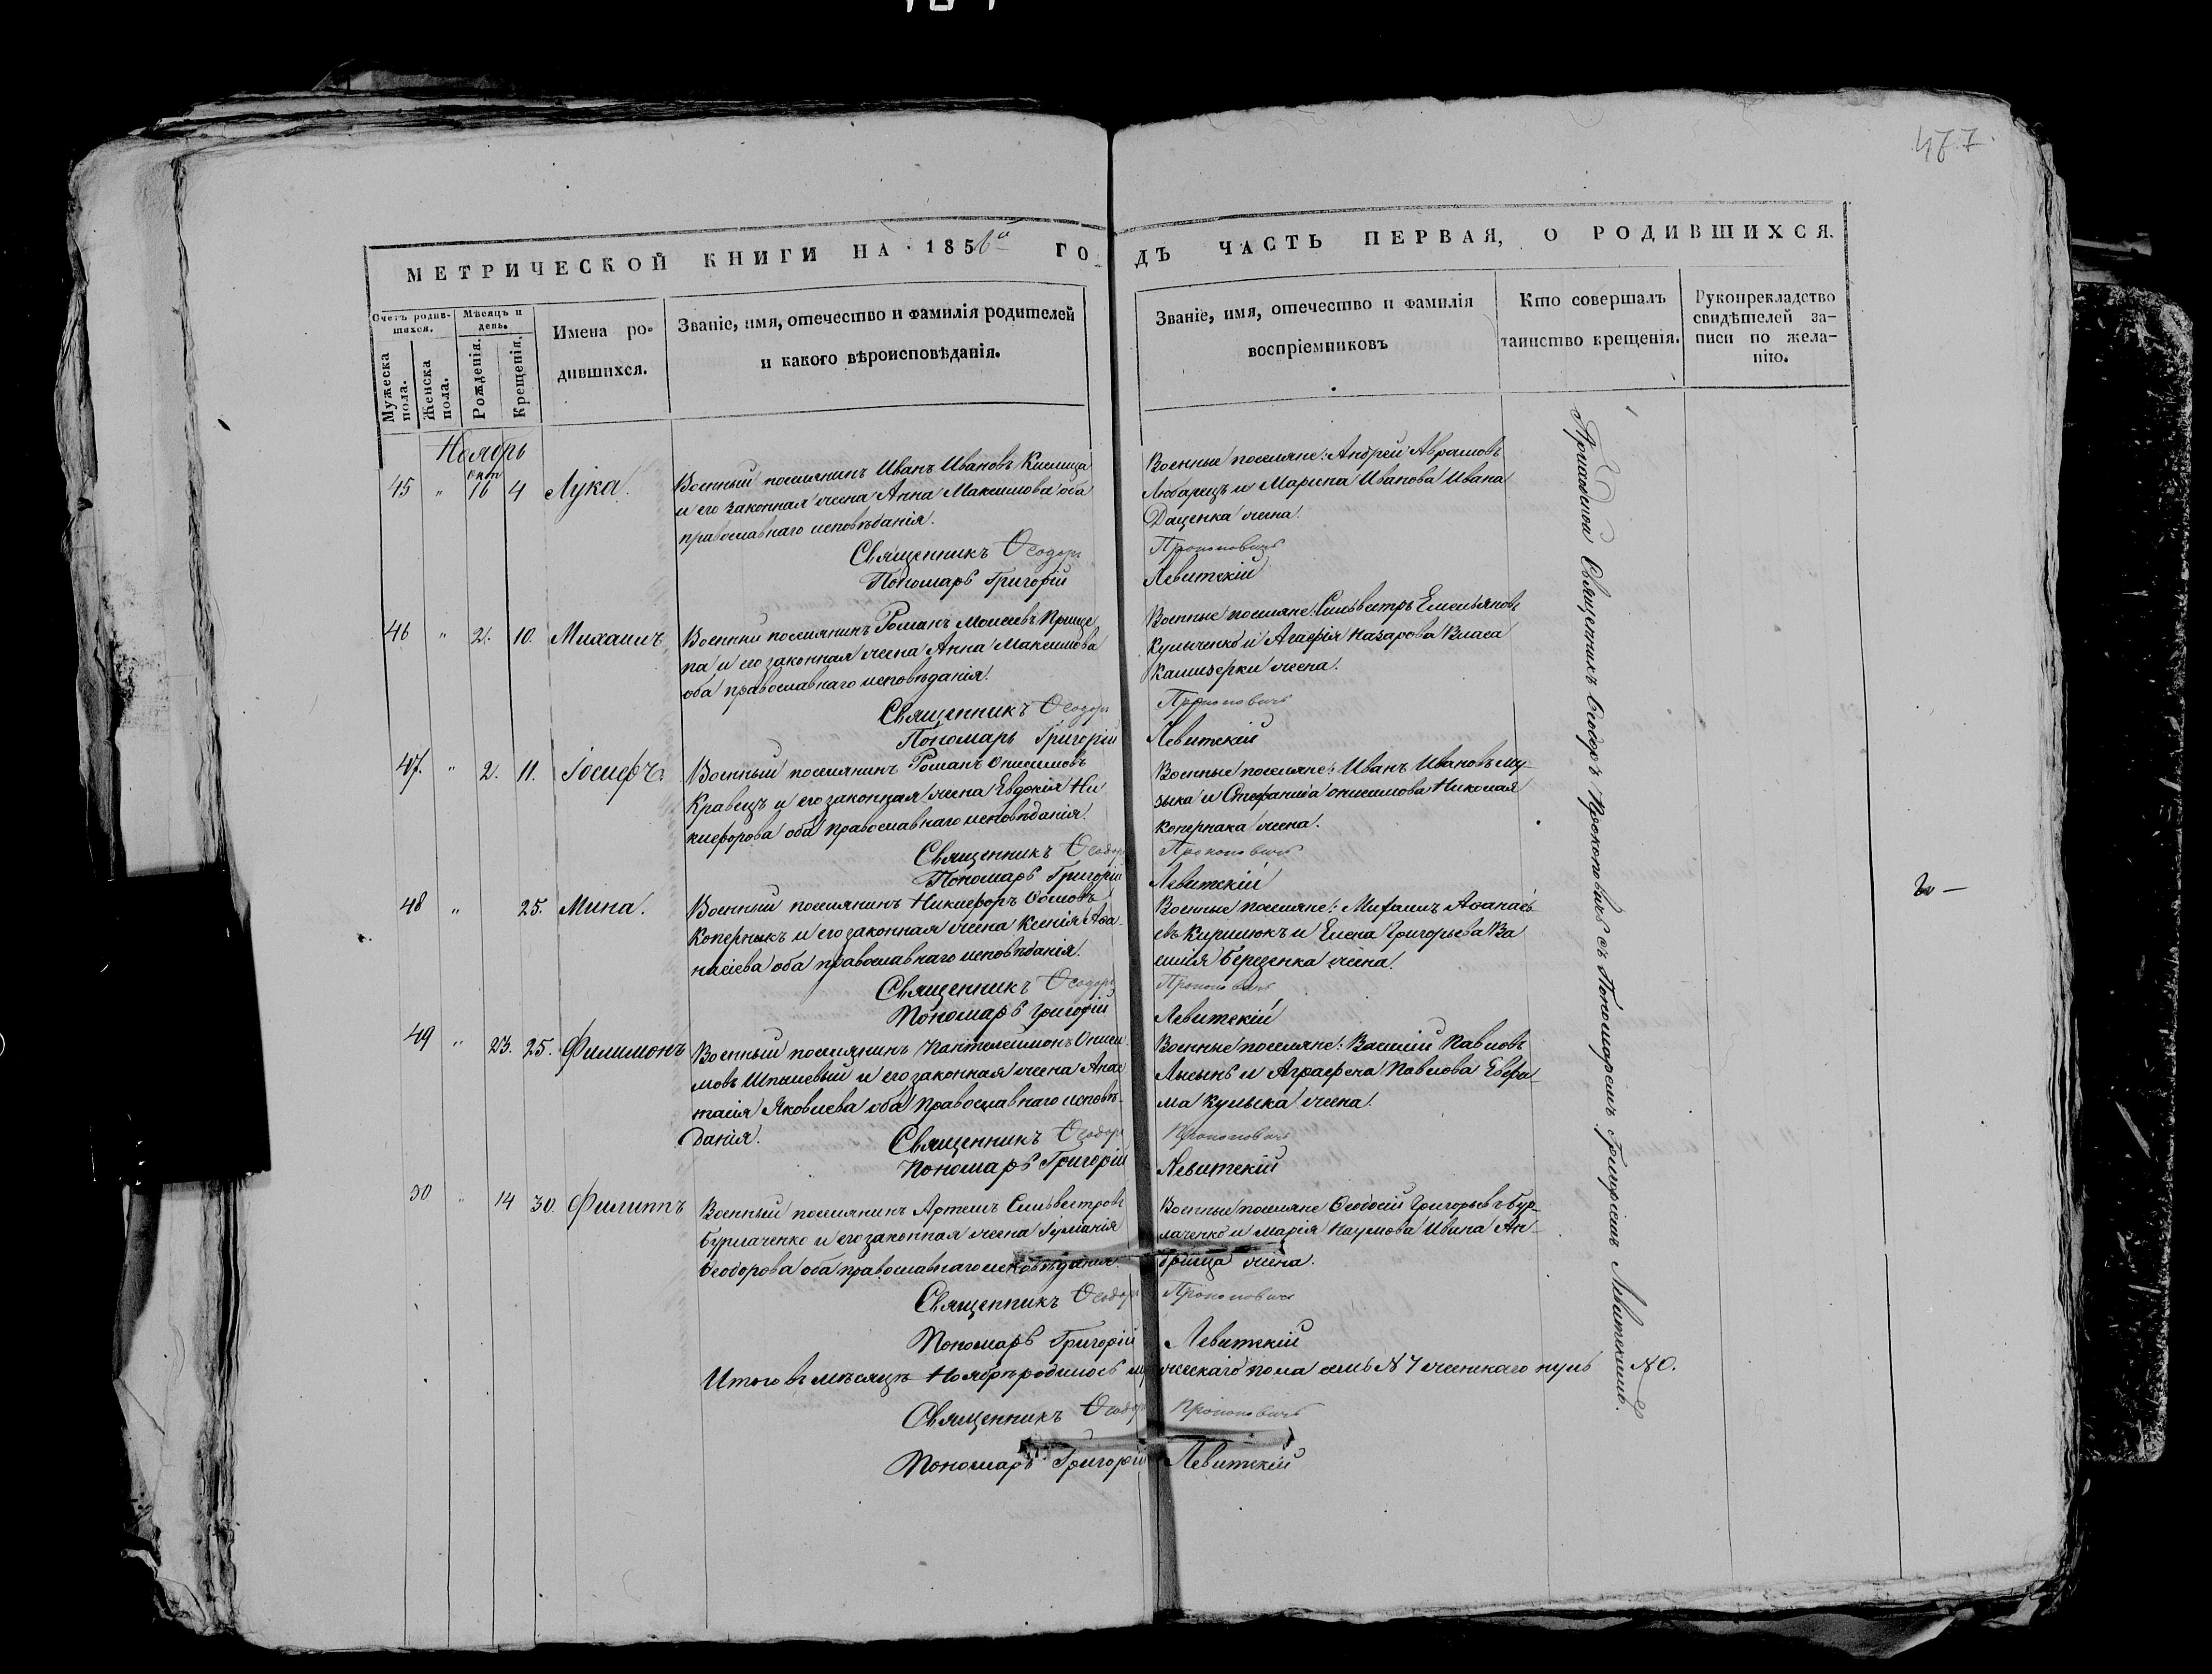 477.
МЕТРИЧЕСКОЙ КНИГИ НА 1856й ГОДЪ ЧАСТЬ ПЕРВАЯ, О РОДИВШИХСЯ.
Счетъ родившихся.
Мужеска пола.
Женска пола.
Мѣсяцъ и день.
Рожденія.
Крещенія.
Имена родившихся.
Званіе, имя, отечество и фамилія родителей
и какого вѣроисповѣданія.
Званіе, имя, отечество и фамилія
воспріемниковъ
Кто совершалъ
таинство крещенія.
Рукоприкладство
свидѣтелей за-
писи по жела-
нію.
Ноябрь
окт
45 " 16 4 Лука.
Военный поселянинъ Иванъ Ивановъ Кислица
и его законная жена Анна Максимова оба
православнаго исповѣданія.
Священникъ Ѳеодоръ
Пономарь Григорій
Военные поселяне: Андрей Аврамовъ
Любарецъ и Марина Иванова Ивана
Даценка жена.
Прокоповичъ
Левитскій
46 " 2. 10. Михаилъ
Военный поселянинъ Романъ Моисеевъ Прище
па и его законная жена Анна Максимова
оба православнаго исповѣданія.
Священникъ Ѳеодоръ
Пономарь Григорій
Военные поселяне: Сильвестръ Емельяновъ
Кульченко и Агафія Назарова Власа
жена.
Прокоповичъ
Левитскій
47. " 2. 11. Іосифъ
Военный поселянинъ Романъ Онисимовъ
Кравецъ и его законная жена Евдокія Ни
кифорова оба православнаго исповѣданія.
Священникъ Ѳеодоръ
Пономарь Григорій
Военные поселяне: Иванъ Ивановъ Му-
зыка и Стефанида Онисимова Николая
Коперняка жена.
Прокоповичъ
Левитскій
48 " 25. Мина.
Военный поселянинъ Никифоръ
Коперныкъ и его законная жена Ксенія Аѳа
насіева оба православнаго исповѣданія.
Священникъ Ѳеодоръ
Пономарь Григорій
Военные поселяне: Михаилъ Аѳанась
евъ Кирилюкъ и Елена Григорьева Ва
силія Березенка жена.
Прокоповичъ
Левитскій
49 " 23. 25. Филимонъ
Военный поселянинъ Пантелеимонъ Ониси
мовъ Шпылевый и его законная жена Анас
тасія Яковлева оба православнаго исповѣ-
данія.
Священникъ Ѳеодоръ
Пономарь Григорій
Военные поселяне: Василій Павловъ
Лысынъ и Аграфена Павлова Евфи-
ма Кулыка жена.
Прокоповичъ
Левитскій
50 " 14 30. Филиппъ
Военный поселянинъ Артемъ Сильвестровъ
Бурлаченко и его законная жена Іуліанія
Ѳеодорова оба православнаго исповѣданія.
Священникъ Ѳеодоръ
Пономарь Григорій
Военные поселяне Ѳеодосій Григорьевъ Бур-
лаченко и Марія Наумова Ивана Ан-
дрища жена.
Прокоповичъ
Левитскій
Итого въ мѣсяцѣ Ноябрѣ родилось мужескаго пола семь N 7 женскаго нуль N 0.
Священникъ Ѳеодоръ Прокоповичъ
Пономарь Григорій Левитскій
Приходской Священникъ Ѳеодоръ Прокоповичъ съ Пономаремъ Григоріемъ Левитскимъ.